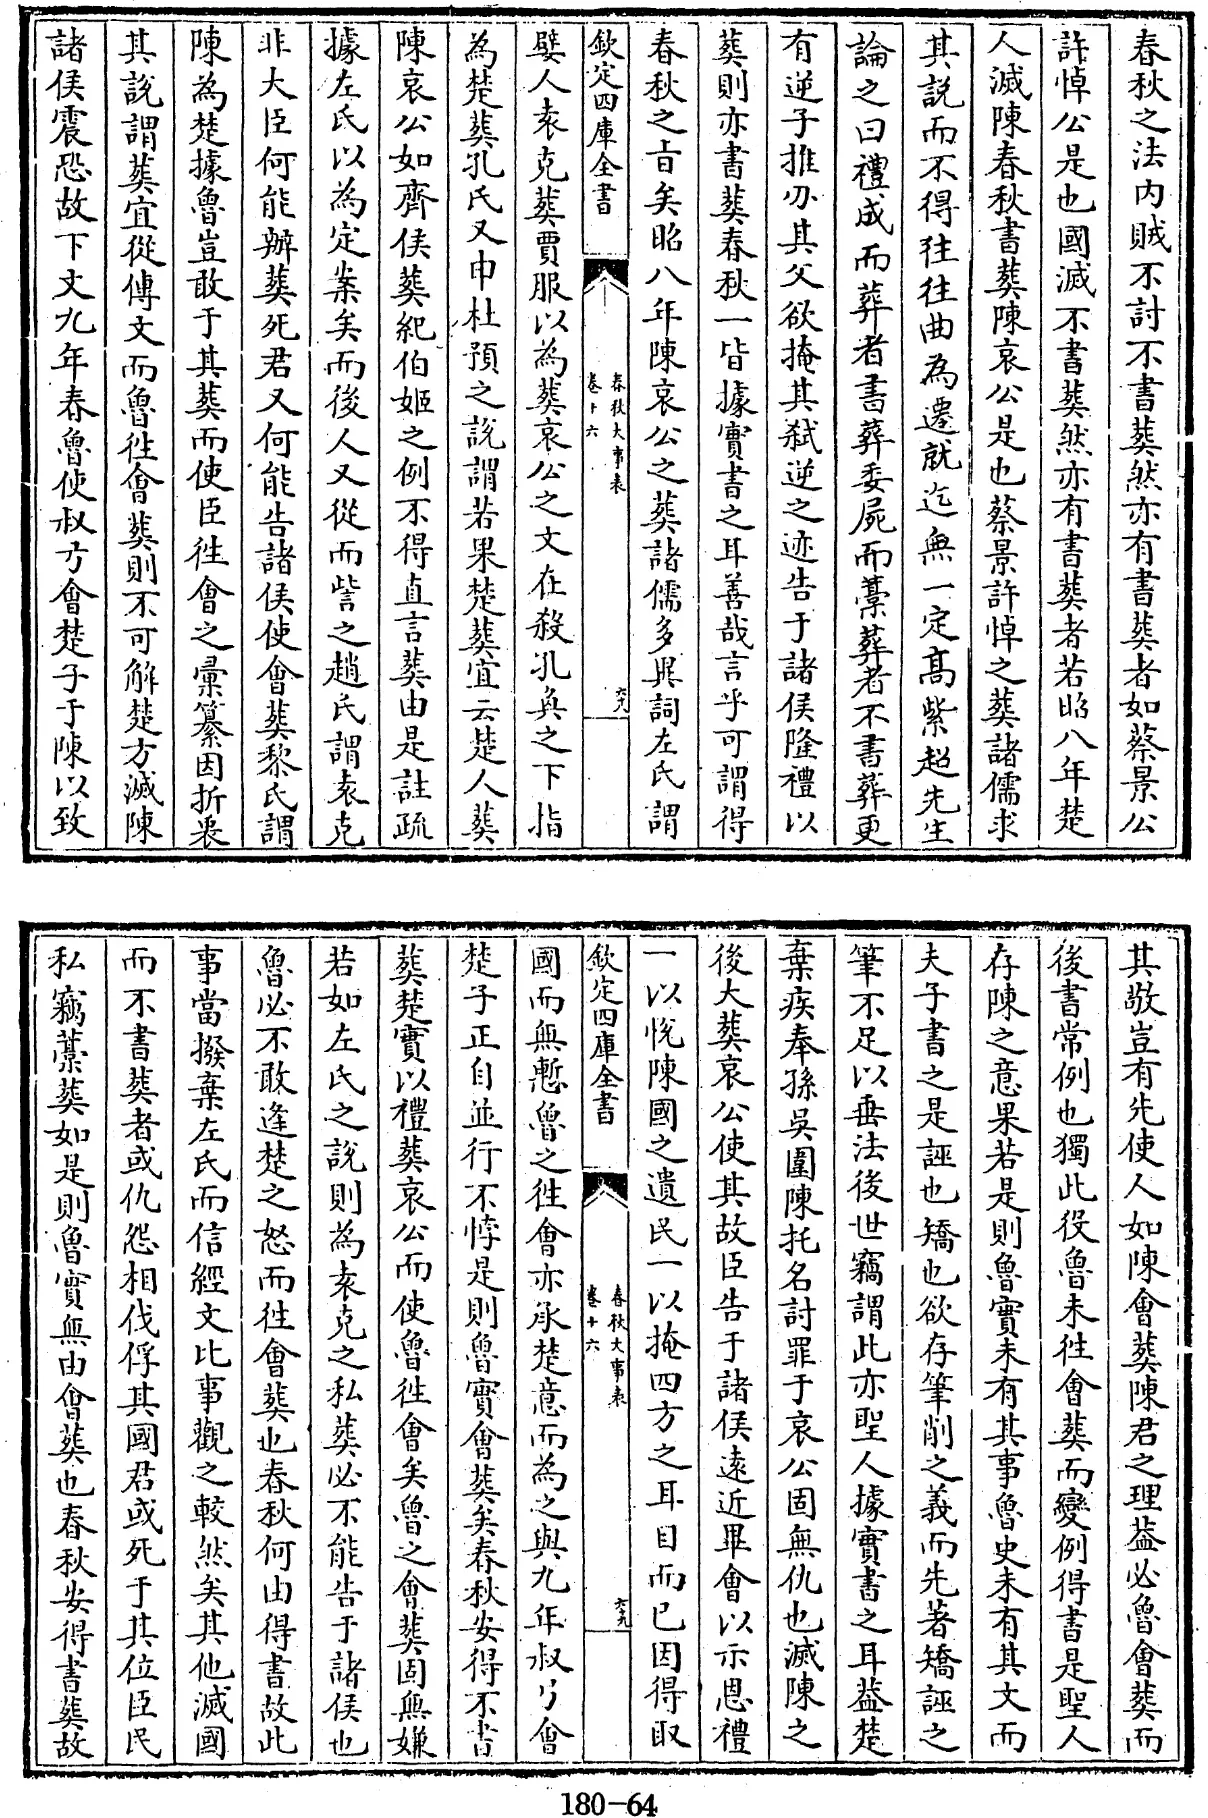 春秋之法内賊不討不書葬然亦有書葬者如蔡景公
許悼公是也國滅不書葬然亦有書葬者若昭八年楚
人滅陳春秋書葬陳哀公是也蔡景許悼之葬諸儒求
其說而不得往往曲為遷就迄無一定髙紫超先生
論之曰禮成而葬者書葬委屍而藁葬者不書葬更
有逆子推刃其父欲掩其弑逆之迹告于諸侯隆禮以
葬則亦書葬春秋一皆據實書之耳善哉言乎可謂得
春秋之㫖矣昭八年陳哀公之葬諸儒多異詞左氏謂
欽定四庫全書
春秋大事表
卷十六
六九
嬖人袁克葬賈服以為葬哀公之文在殺孔奐之下指
為楚葬孔氏又申杜預之說謂若果楚葬宜云楚人葬
陳哀公如齊侯葬紀伯姬之例不得直言葬由是註疏
據左氏以為定案矣而後人又從而訾之趙氏謂袁克
非大臣何能辦葬死君又何能告諸侯使會葬黎氏謂
陳為楚據魯豈敢于其葬而使臣徃會之彚纂因折衷
其說謂葬宜從傳文而魯徃會葬則不可解楚方滅陳
諸侯震恐故下文九年春魯使叔弓會楚子于陳以致
其敬豈有先使人如陳會葬陳君之理葢必魯會葬而
後書常例也獨此役魯未徃會葬而變例得書是聖人
存陳之意果若是則魯實未有其事魯史未有其文而
夫子書之是誣也矯也欲存筆削之義而先著矯誣之
筆不足以垂法後世竊謂此亦聖人據實書之耳葢楚
棄疾奉孫吳圍陳托名討罪于哀公固無仇也滅陳之
後大葬哀公使其故臣告于諸侯遠近畢會以示恩禮
一以恱陳國之遺民一以掩四方之耳目而已因得取
欽定四庫全書
春秋大事表
卷十六
六九
國而無慙魯之徃會亦承楚意而為之與九年叔弓會
楚子正自並行不悖是則魯實會葬矣春秋安得不書
葬楚實以禮葬哀公而使魯徃會矣魯之會葬固無嫌
若如左氏之說則為袁克之私葬必不能告于諸侯也
魯必不敢逢楚之怒而徃會葬也春秋何由得書故此
事當撥棄左氏而信經文比事觀之較然矣其他滅國
而不書葬者或仇怨相伐俘其國君或死于其位臣民
私竊藁葬如是則魯實無由會葬也春秋安得書葬故
180-64